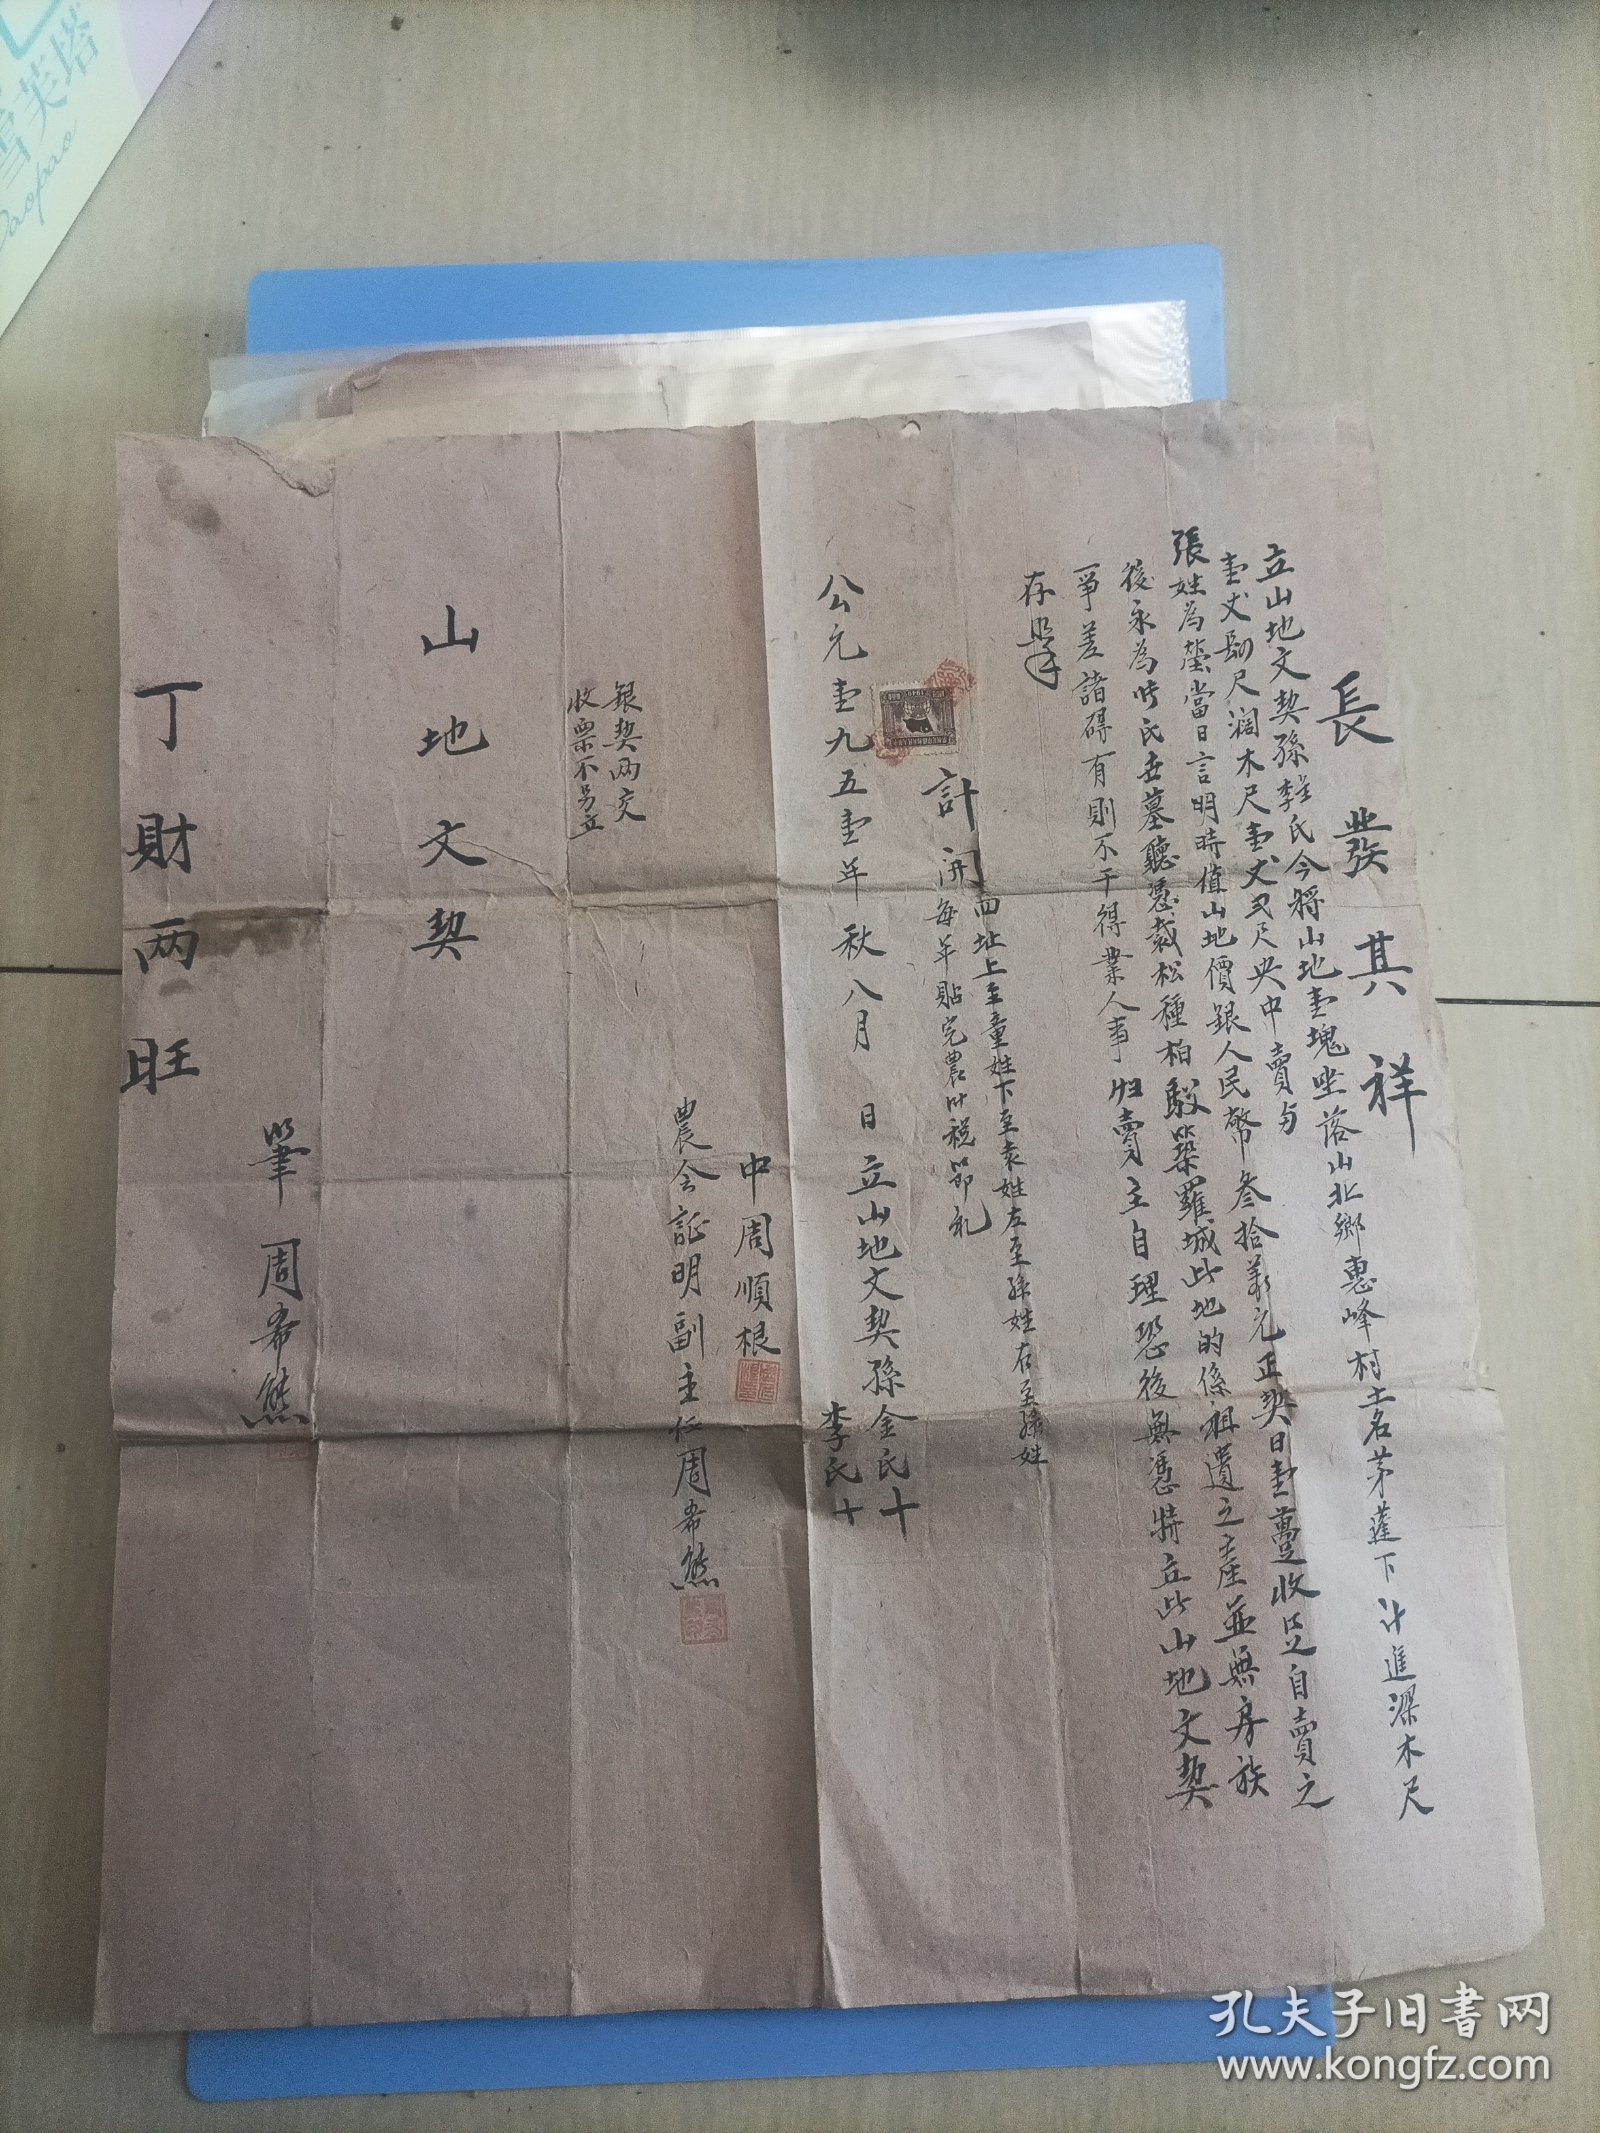 長發其祥
立山地文契孫李氏今將山地壹塊坐落山北鄉惠峰村土名茅蓬下計進深木尺
壹丈捌尺濶木尺壹丈弍尺央中賣与
張姓為塋當日言明時值山地價銀人民幣叁拾萬元正契日壹躉收足自賣之
後永為張氏世墓聽憑栽松種柏駁築羅城此地的係祖遺之產並無房族
爭差諸碍有則不干得業人事歸賣主自理恐後無憑特立此山地文契
存照
計開四址上至童姓下至袁姓左至孫姓右至孫姓
每年貼完農業稅節礼
公元壹九五壹年秋八月 日立山地文契孫金氏十
李氏十
中周順根
農会証明副主任周希熊
銀契两交
收票不另立
山地文契
筆周希熊
丁財两旺
雪芙塔
孔夫子旧书网
www.kongfz.com